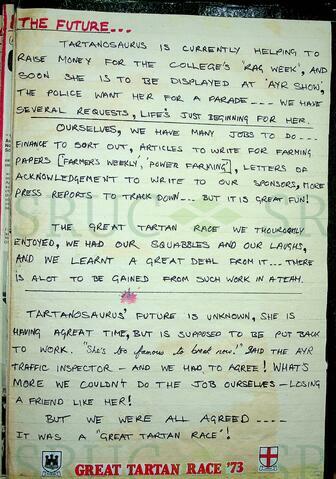 THE FUTURE...
TARTANOSAURUS IS CURRENTLY HELPING TO
RAISE MONEY FOR THE COLLEGE'S 'RAG WEEK', AND
SOON SHE IS TO BE DISPLAYED AT 'AYR SHOW',
THE POLICE WANT HER FOR A PARADE---- WE HAVE
SEVERAL REQUESTS, LIFE'S JUST BEGINNING FOR HER.
OURSELVES, WE HAVE MANY JOBS TO DO---
FINANCE TO SORT OUT, ARTICLES TO WRITE FOR FARMING
PAPERS [FARMER'S WEEKLY, 'POWER FARMING'], LETTERS OF
ACKNOWLEDGEMENT TO WRITE TO OUR SPONSORS, MORE
PRESS REPORTS TO TRACK DOWN--- BUT IT IS GREAT FUN!
THE GREAT TARTAN RACE WE THOUROHLY
ENJOYED, WE HAD OUR SQUABBLES AND OUR LAUGHS,
AND WE LEARNT A GREAT DEAL FROM IT---THERE
IS ALOT TO BE GAINED FROM SUCH WORK IN A TEAM.
TARTANOSAURUS' FUTURE IS UNKNOWN, SHE IS
HAVING AGREAT TIME, BUT IS SUPPOSED TO BE PUT BACK
TO WORK. "She's too famous to break now!" SAID THE AYR
TRAFFIC INSPECTOR - AND WE HAD TO AGREE! WHAT'S
MORE WE COULDN'T DO THE JOB OURSELVES - LOSING
A FRIEND LIKE HER!
BUT WE WERE ALL AGREED ----
IT WAS A "GREAT TARTAN RACE"!
GREAT TARTAN RACE '73
SRUC